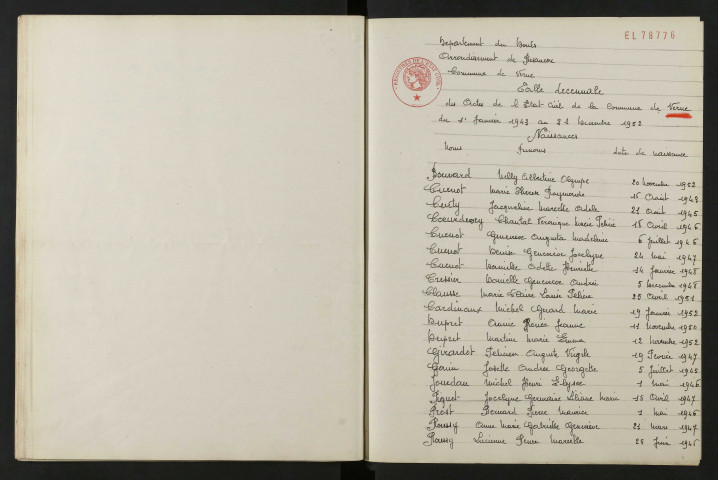 EL 78776
Departement du Doubs
Arrondissement de Besancon
Commune de Verne
Table decennale
des Actes de l'Etat Civil de la Commune de Verne
du 1er Janvier 1943 au 31 Decembre 1952
Naissances
Noms Prenoms date de naissance
Bouvard Nelly Albertine Olympe 20 Novembre 1952
Cuenot Marie Therese Raymonde 15 Aout 1943
Cuety Jacqueline Marcelle Odile 21 Aout 1945
Coeurdevey Chantal Veronique Marie 18 Avril 1946
Cuenot Genevieve Augusta Madeleine 6 Juillet 1946
Cuenot Denise Genevieve Jocelyne 24 Mai 1947
Cuenot Danielle Odette Henriette 14 Janvier 1948
Cressier Danielle Genevieve Andrée 5 Decembre 1948
Clausse Marie Claire Louise 25 Avril 1951
Cardinaux Michel Gerard Marie 19 Janvier 1952
Dupret Annie Jeanne 11 Novembre 1950
Dupret Martine Marie Emma 12 Novembre 1952
Girardot Felicien Auguste Virgile 19 Fevrier 1947
Josette Andree Georgette 5 Juillet 1945
Jourdan Michel Henri 1 Mai 1946
Piquet Jocelyne Germaine Liliane Marie 18 Avril 1947
Prost Bernard Pierre Maurice 1 Mai 1946
Roussy Anne Marie Gabrielle Genevieve 21 Mars 1947
Roussy Lucienne Marcelle 28 Juin 1945